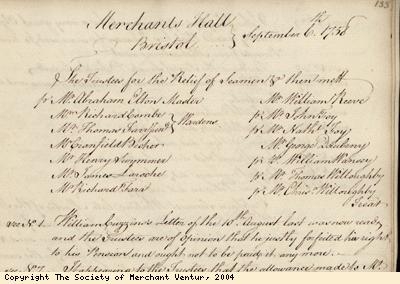 133
Merchants Hall
Bristol } September 6th 1758
The Trustees for the Relief of Seamen &c then mett
pr Mr Abraham Elton Master Mr William Reeve
Mr Richard Combe } Wardens pr Mr John Foy
Mr Thomas Farr Junr pr Mr Nathl Foy
Mr Cranfield Becher Mr George Daubeny
Mr Henry Swymmer pr Mr William Wansey
Mr James Laroche pr Mr Thomas Willoughby
Mr Richard Farr pr Mr Christ Willoughby
Treasr
No 1. William letter of the 10th August last was now read
and the Trustees are of Opinion that he justly forfeited his right
to his Pension and ought not to be paid it any more.
It appearing to the Trustees that the allowance made to Mr
Copyright The Society of Merchant Ventur, 2004